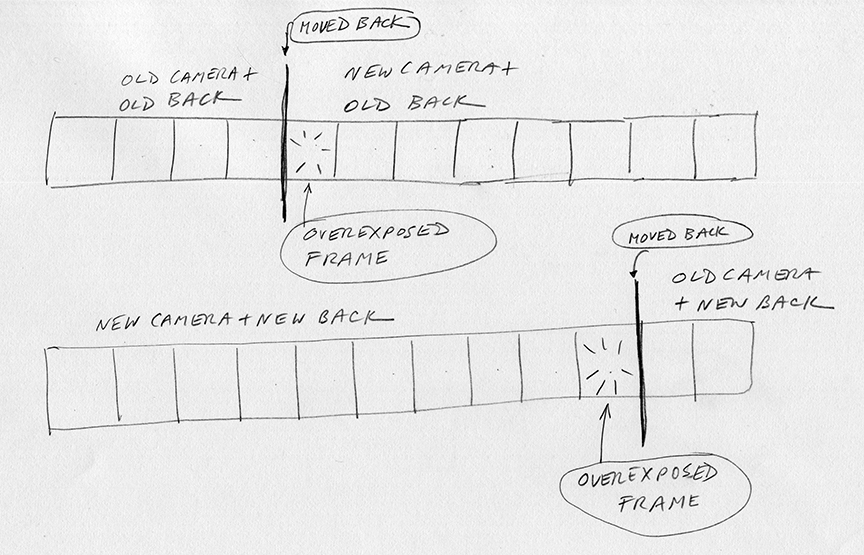 MOVED BACK
OLD CAMERA +
OLD BACK
NEW CAMERA +
OLD BACK
OVEREXPOSED
FRAME
MOVED BACK
OLD CAMERA
+ NEW BACK
NEW CAMERA + NEW BACK
OVEREXPOSED
FRAME